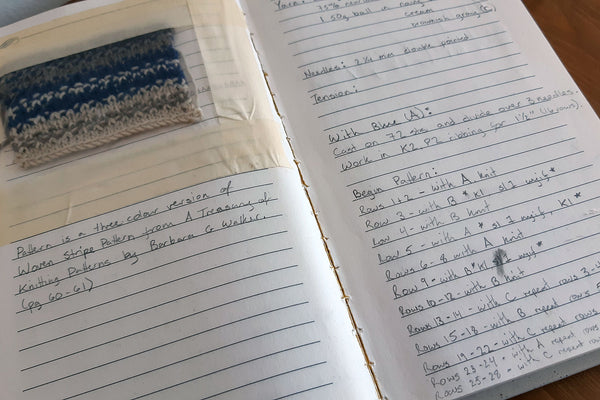 Pattern is a three colour version of
Woven Stripe Pattern from A Treasury of
Knitting Patterns by Barbara G Walker.
(pg 60-61)
Yarn:
35%
1 50g ball in navy
cream
brownish grey (C)
Needles: 2 1/4 mm double pointed
Tension:
With Blue (A):
Cast on 72 sts and divide over 3 needles.
Work in K2 P2 ribbing for 1 1/2" (16 rows).
Begin Pattern:
Rows 1+2 - with A knit
Row 3 - with B *K1 sl2 wyif*
Row 4 - with B knit
Row 5 - with A * sl 2 wyif, K1 *
Rows 6-8 with A knit
Row 9 - with B *K1 wyif*
Rows 10-12 - with B knit
Rows 13-14 - with C repeat rows 3-4
Rows 15-18 - with B repeat rows 5
Rows 19-22 - with C repeat rows
Rows 23-24 - with A repeat rows
Rows 25-28 - with C repeat rows